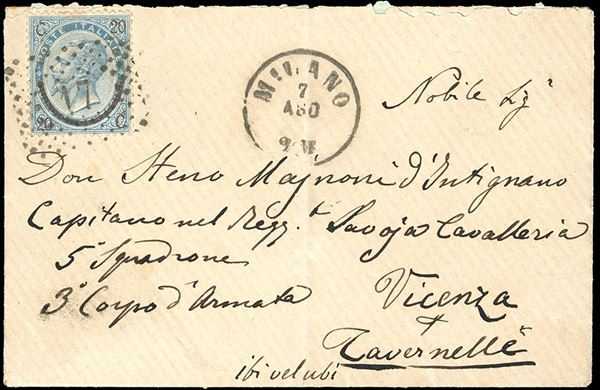 C 20
POSTE ITALIANE
17
20 C
MILANO
7
AGO
Nobile Sigʳ
Don Steno Majnoni d'Intignano
Capitano nel Regg.ᵗᵒ Savoja Cavalleria
5° Squadrone
3° Corpo d'Armata
Vicenza
+
Tavernelle
ibi vel ubi